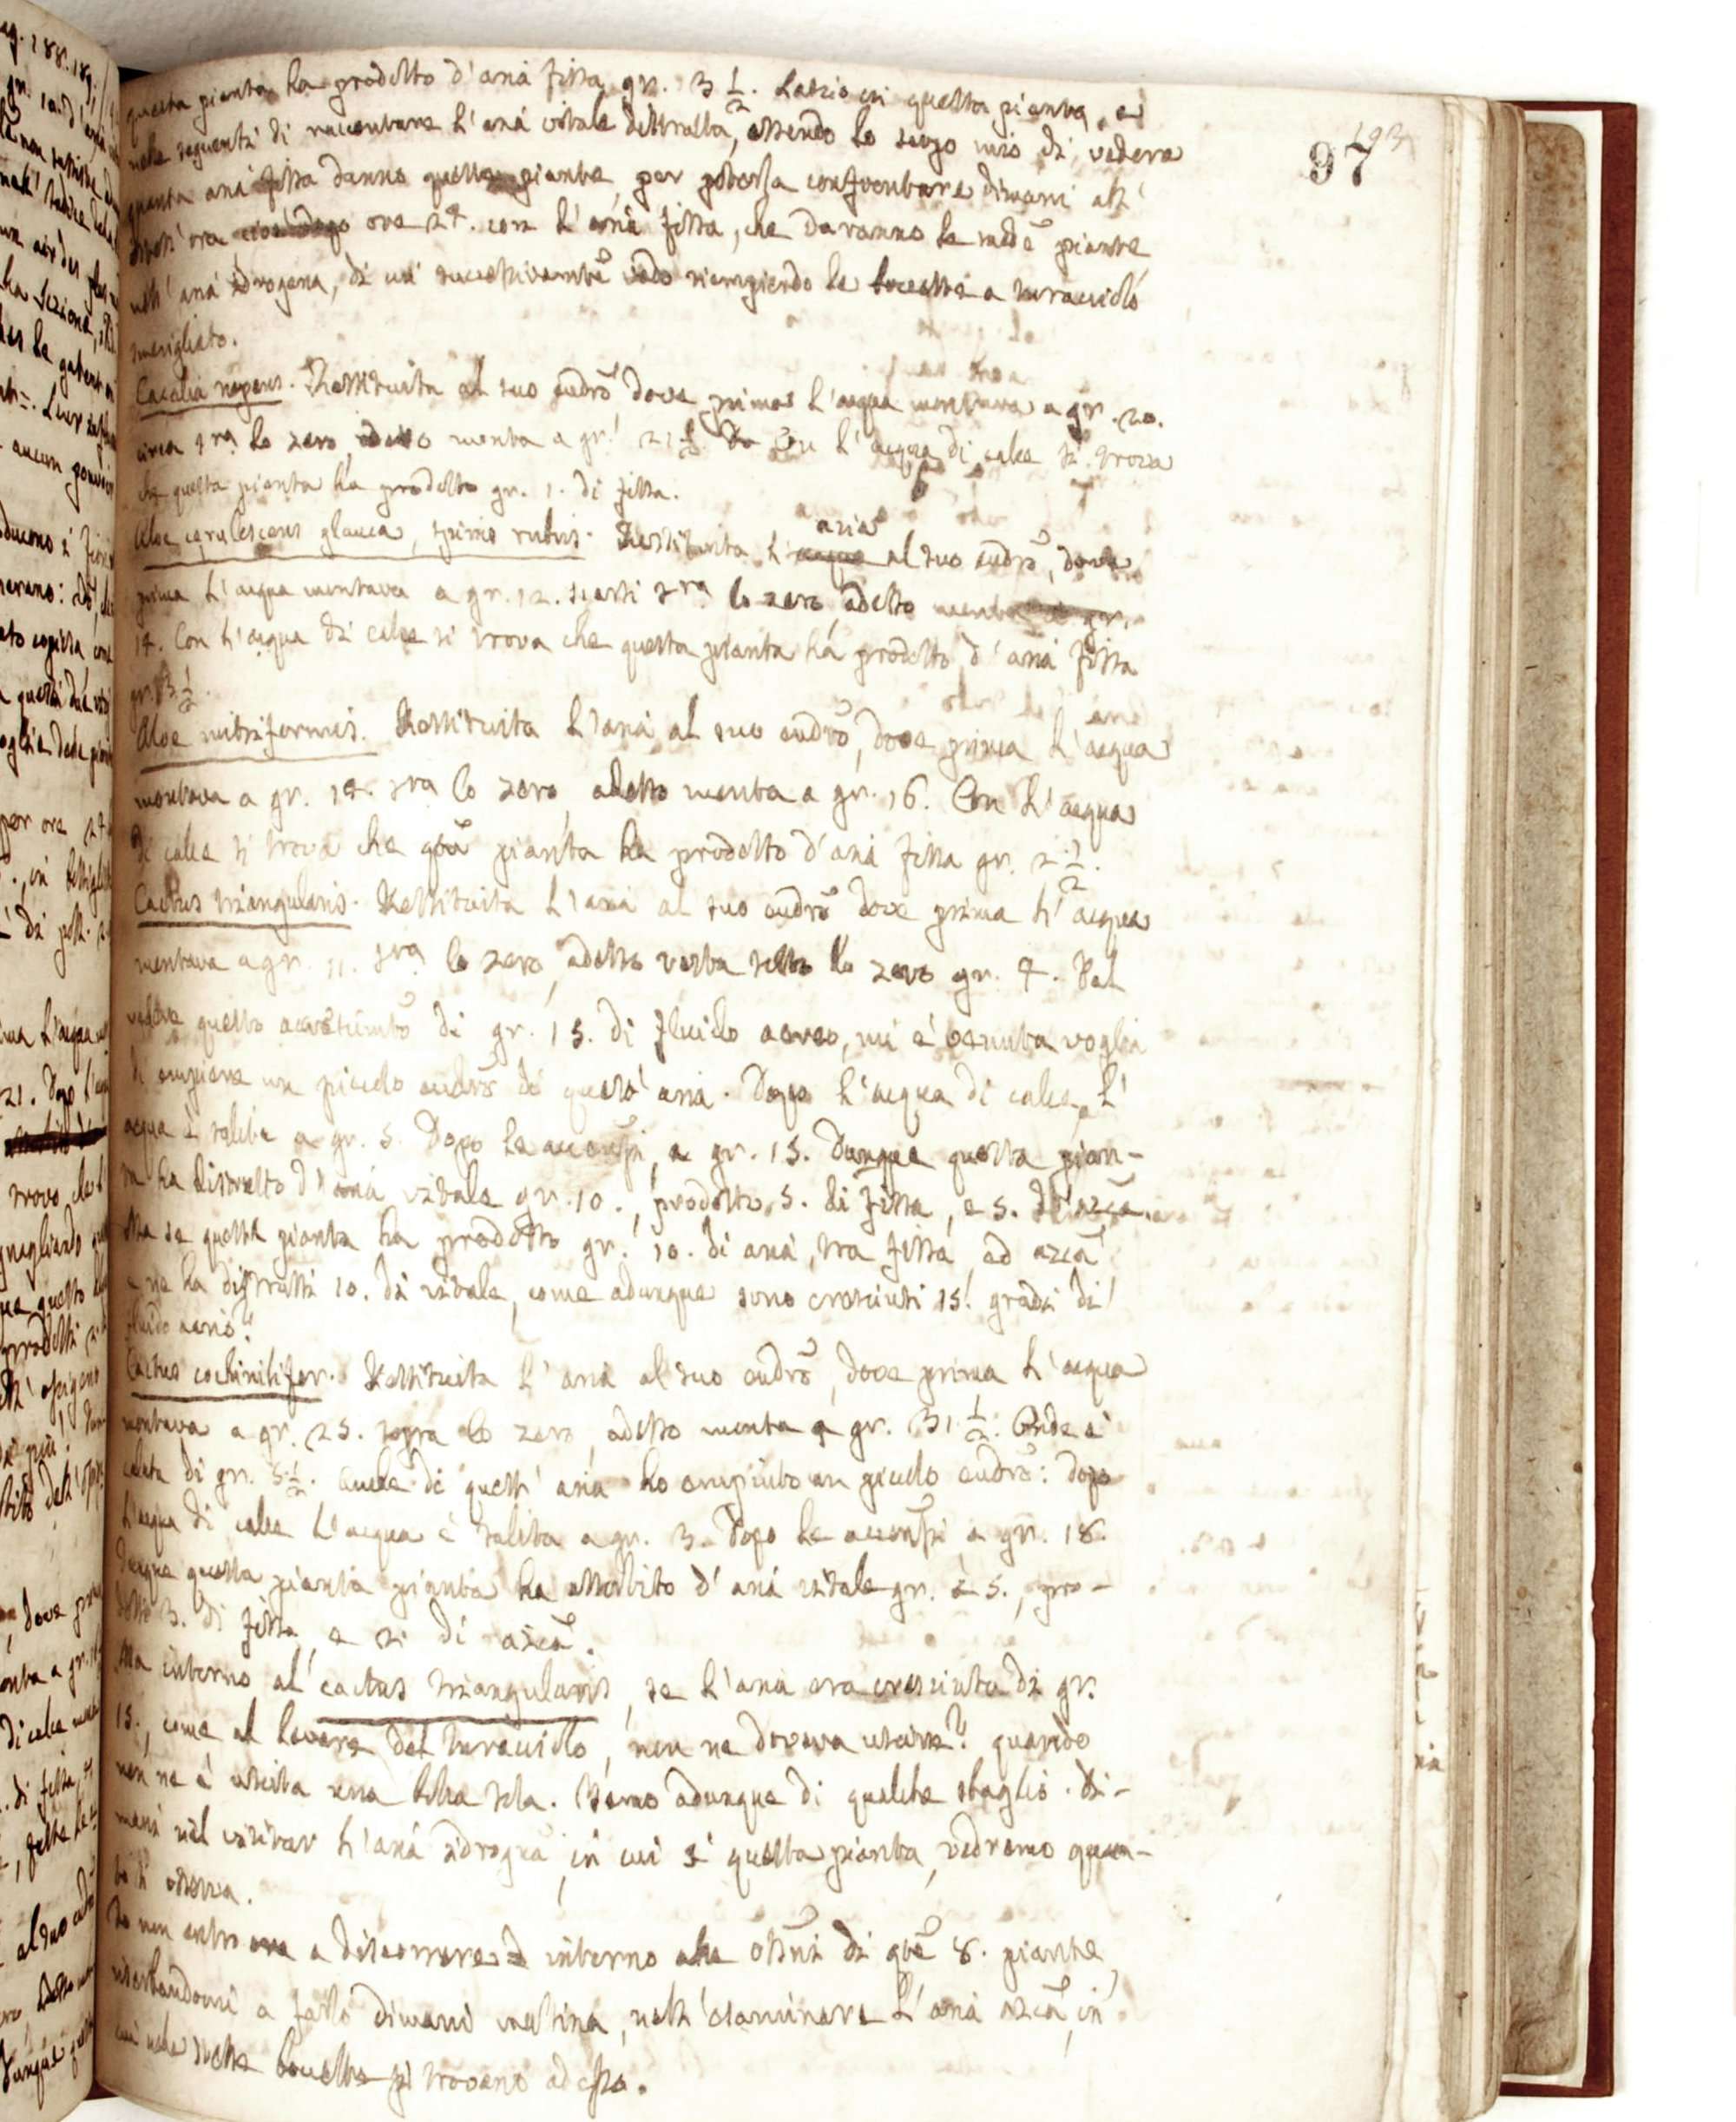 193
97
questa pianta ha prodotto d'aria fissa gr. 3 1/2. Lascio in questa pianta, e
nelle seguenti di raccontare l'aria vitale distrutta, essendo lo scopo mio di vedere
quanta aria fissa danno queste piante, per poterla confrontare dimani all'
ore 24. con l'aria fissa, che daranno le medē piante
nell'aria idrogena, di cui successivamtē vado riempiendo le boccette a turacciolo
smerigliato.
Cacalia repens. Restituita al suo cudrō dove prima l'acqua montava a gr. 20.
circa sra lo zero, adesso monta a gr. 21 1/2. Con l'acqua di calce si trova
che questa pianta ha prodotto gr. 1. di fissa.
Aloe cærulescens glauca, spinis rubris. Restituita l' aria al suo cudrō, dove
prima l'acqua montava a gr. 12. scarsi sra lo zero, adesso monta a gr.
14. Con l'acqua di calce si trova che questa pianta ha prodotto d'aria fissa
gr. 3 1/2.
Aloe mitriformis. Restituita l'aria al suo cudrō, dove prima l'acqua
montava a gr. 14. sra lo zero, adesso monta a gr. 16. Con l'acqua
di calce si trova che qtā pianta ha prodotto d'aria fissa gr. 2 1/2.
Cactus triangularis. Restituita l'aria al suo cudrō dove prima l'acqua
montava a gr. 11. sra lo zero, adesso resta sotto lo zero gr. 4. Dal
vedere questo accrescimtō di gr. 15. di fluido aereo, mi è venuta voglia
di empiere un picciolo cudrō di quest'aria. Dopo l'acqua di calce, l'
acqua è salita a gr. 5. Dopo le accensni, a gr. 15. Dunque questa pian-
ta ha distrutto d'aria vitale gr. 10., prodotto 5. di fissa, e 5. di azcā.
Ma se questa pianta ha prodotto gr. 10. di aria, tra fissa, ed azcā
e ne ha distrutti 10. di vitale, come adunque sono cresciuti 15. gradi di
fluido aereo?
Cactus cochinilifer. Restituita l'aria al suo cudrō, dove prima l'acqua
montava a gr. 25. sopra lo zero, adesso monta a gr. 31 1/2. Onde è
calata di gr. 5 1/2. Anche di quest'aria ho empiuto un picciolo cudrō: Dopo
l'acqua di calce l'acqua è salita a gr. 3. Dopo le accensni a gr. 18.
Dunque questa pianta pianta ha assorbito d'aria vitale gr. 5., pro-
dotto 3. di fissa, e 2. di azcā.
Ma intorno al cactus triangularis, se l'aria era cresciuta di gr.
15., come al levare del turacciolo, non ne doveva uscire? quando
non ne è uscita una bolla sola. Temo adunque di qualche sbaglio. Di-
mani nel visitar l'aria idrognā, in cui è questa pianta, vedremo quan-
to si osserva.
Io non entro ora a discorrere intorno alle ossni di qtē 8. piante
riserbandomi a farlo dimani mattina, nell'esaminare l'aria azcā, in
cui nelle stesse boccette si trovano adesso.